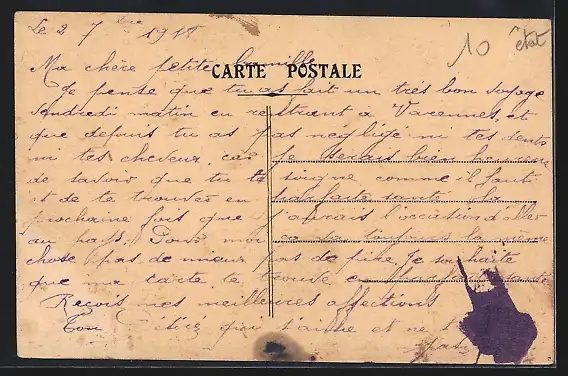 Le 2 7bre 1911
10 état
Ma chère petite Camille
CARTE POSTALE
Je pense que tu as fait un très bon voyage
vendredi matin en rentrant à Varennes, et
que depuis tu as pas négligé ni tes dents
ni tes cheveux, car Je serais bien heureux
de savoir que tu te soigne comme il faut
et de te trouver en parfaite santé la
prochaine fois que j'aurais l'occasion d'aller
au pays. Pour moi toujours la même
chose pas de mieux pas de pire. Je souhaite
que ma carte te trouve en
Reçois mes meilleures affections
Ton qui t'aime et ne t'
pas